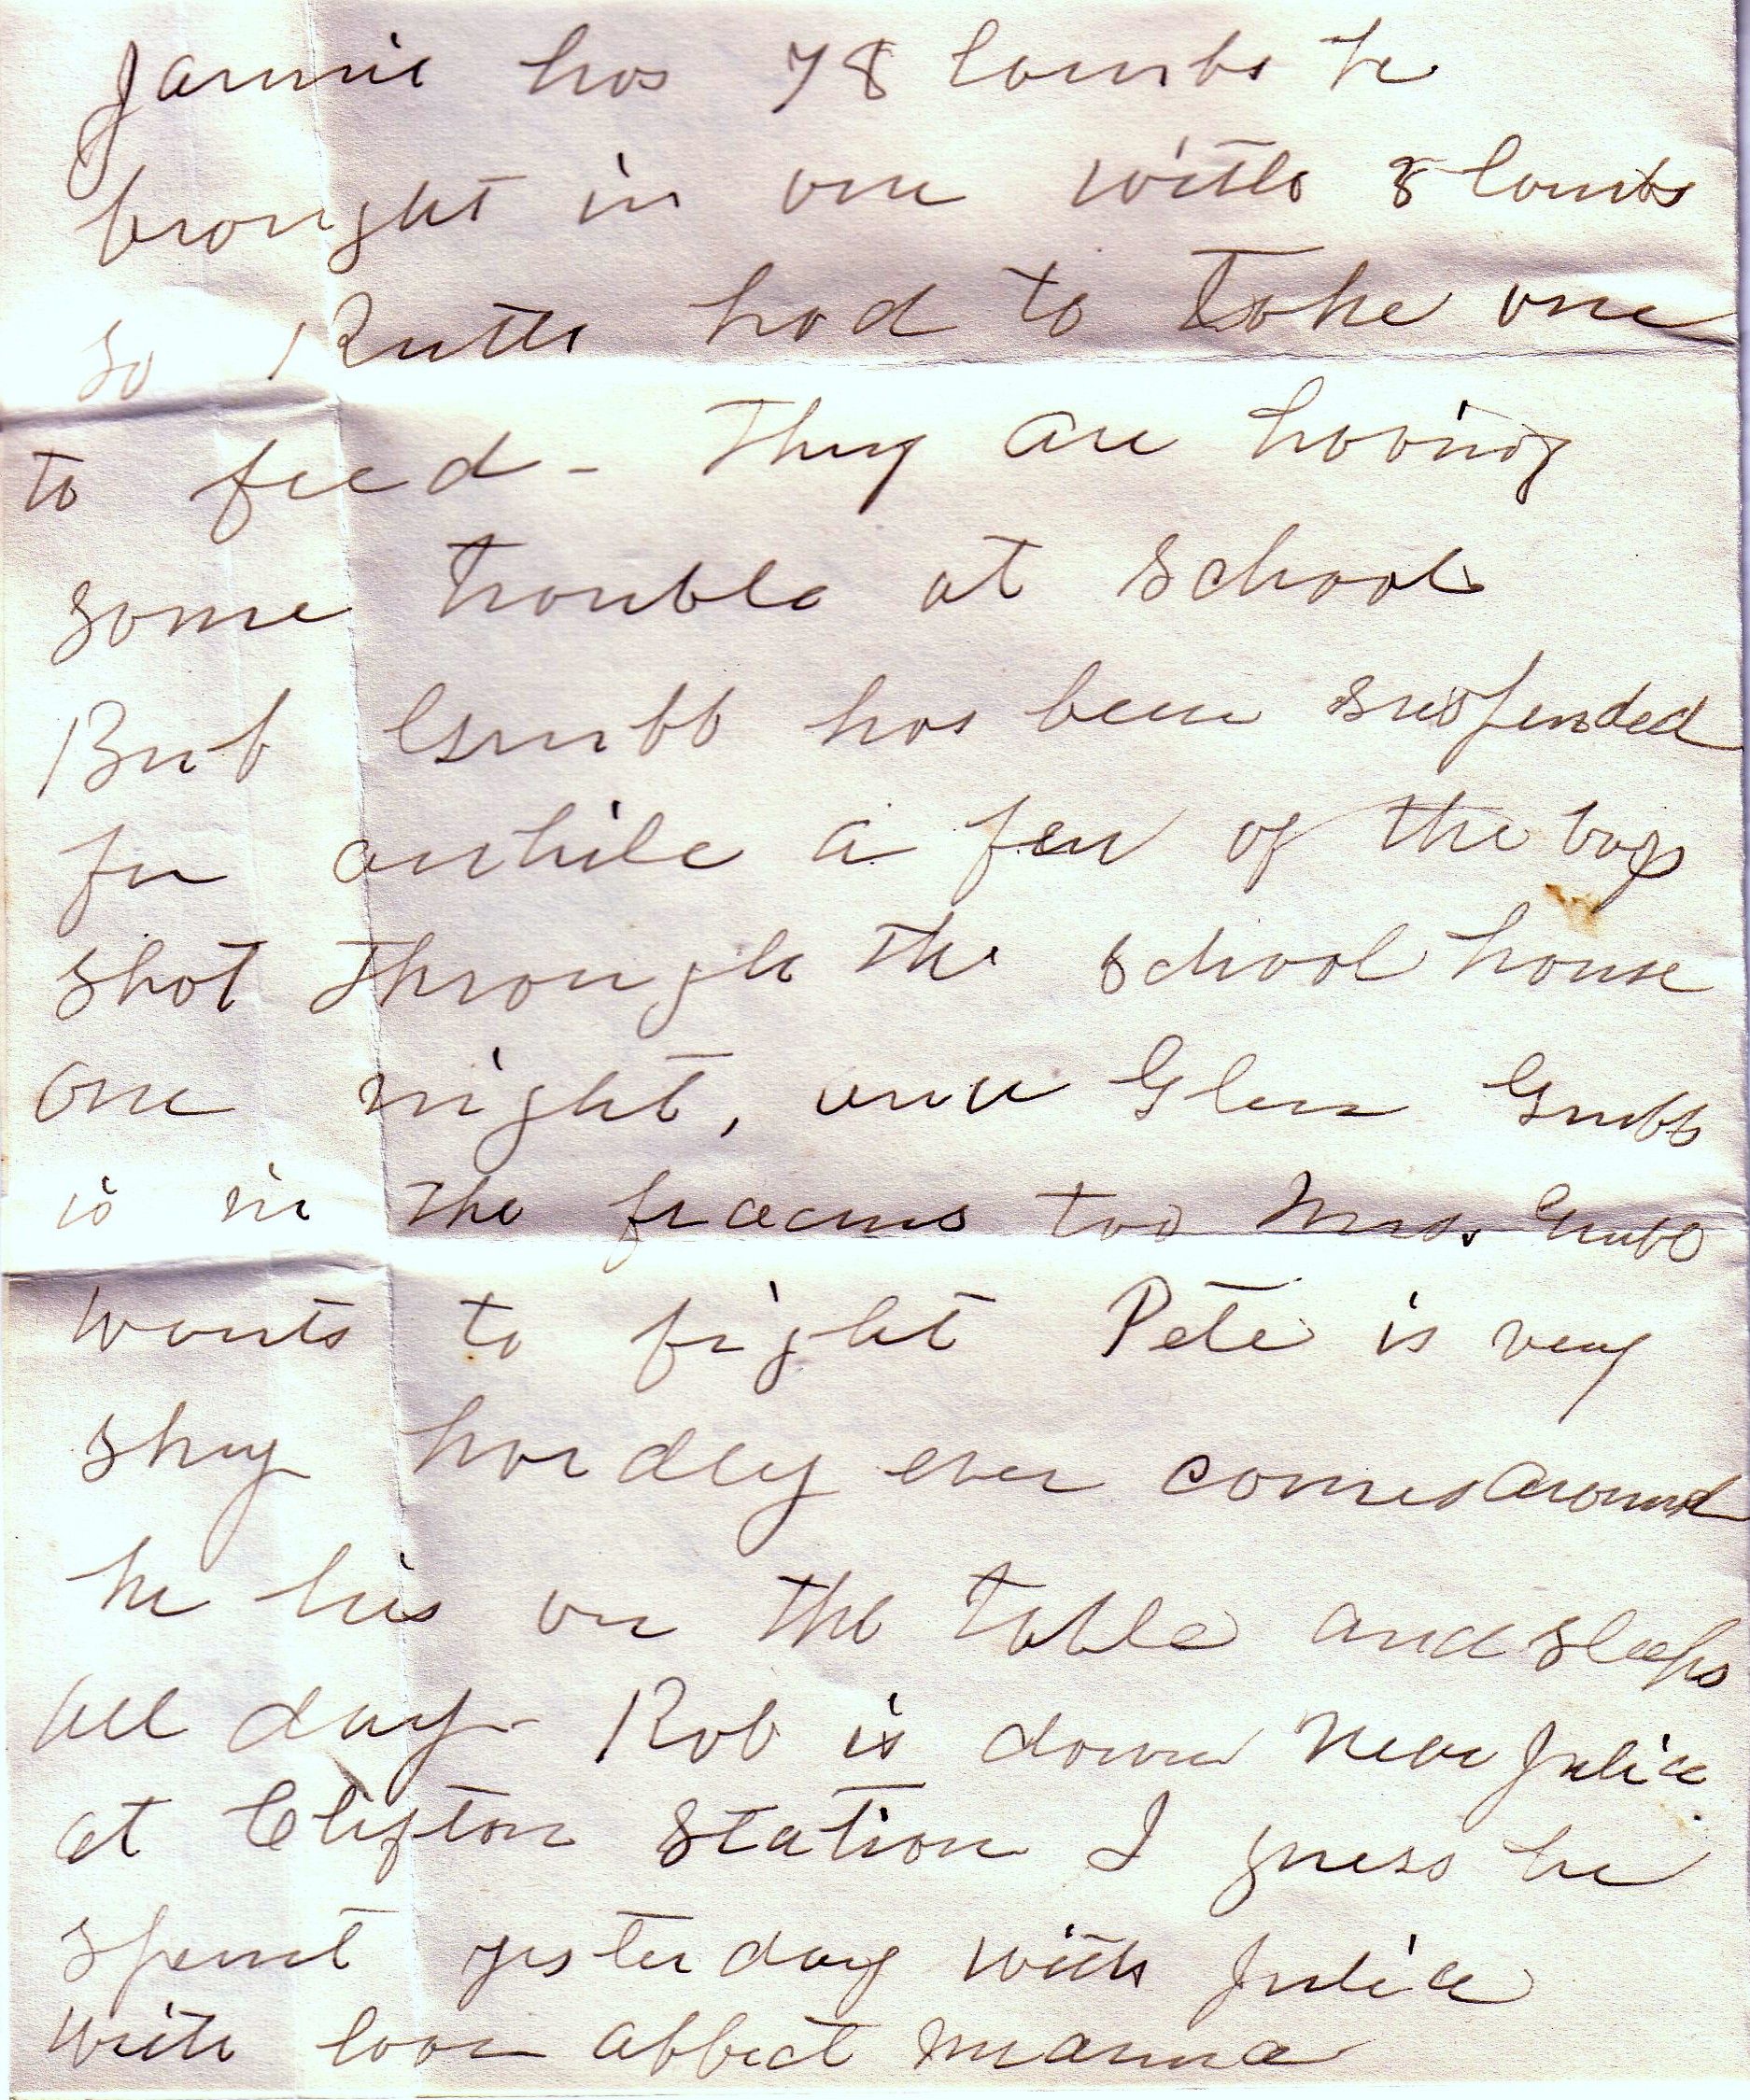 Jammie has 78 lambs he
brought in one with 3 lambs
so Ruth had to take one
to feed - They are having
some trouble at school
Bub Grubb has been suspended
for awhile a few of the boys
shot through the school house
one night, Glen Grubb
is in the fracus too Mrs. Grubb
wants to fight Pete is very
shy hardly ever comes around
he lies on the table and sleeps
all day - Rob is down near Julia
at Clifton Station I guess he
spent yesterday with Julia
with love affect mama